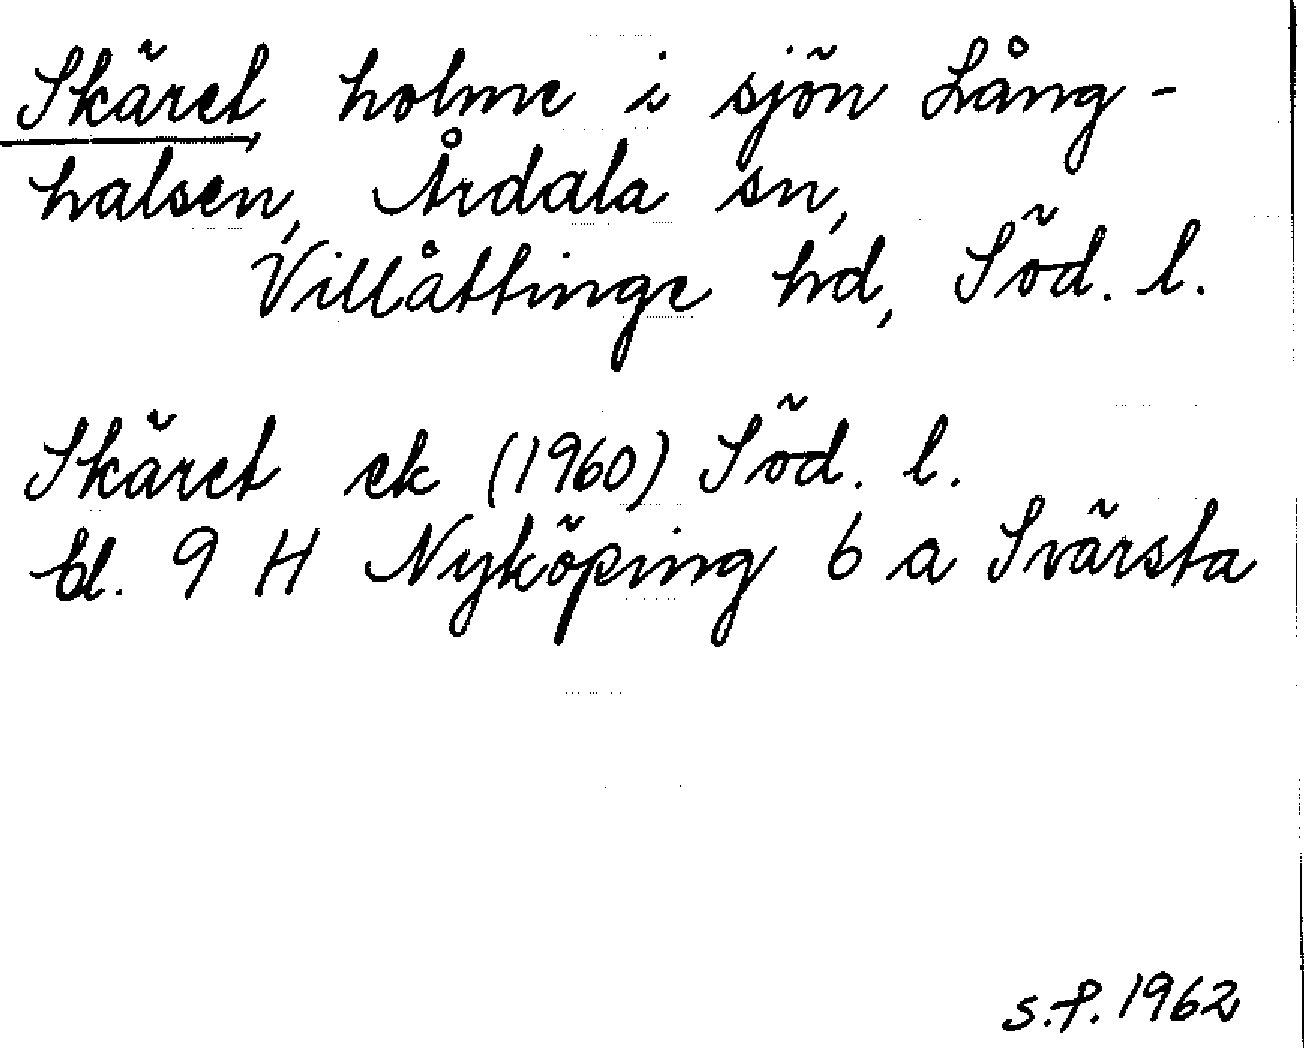 Skäret holme i sjön Lång-
halsen, Årdala sn,
Villåttinge hd, Söd. l.
Skäret ek (1960) Söd. l.
bl. 9 H Nyköping 6 a Svärsta
S.P. 1962